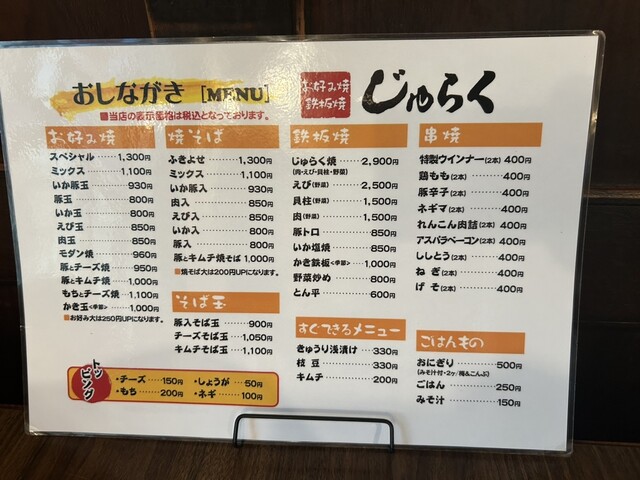 おしながき [MENU]
■当店の表示価格は税込となっております。
お好み焼
鉄板焼
じゅらく
お好み焼
スペシャル……1,300円
ミックス……1,100円
いか豚玉……930円
豚玉……800円
いか玉……800円
えび玉……850円
肉玉……850円
モダン焼……960円
豚とチーズ焼……950円
豚とキムチ焼……1,000円
もちとチーズ焼……1,100円
かき玉<季節>……1,000円
■お好み大は250円UPになります。
焼そば
ふきよせ……1,300円
ミックス……1,100円
いか豚入……930円
肉入……850円
えび入……850円
いか入……800円
豚入……800円
豚とキムチ焼そば 1,000円
■焼そば大は200円UPになります。
そば玉
豚入そば玉……900円
チーズそば玉……1,050円
キムチそば玉……1,100円
トッピング
・チーズ……150円
・しょうが……50円
・もち……200円
・ネギ……100円
鉄板焼
じゅらく焼……2,900円
(肉・えび・貝柱・野菜)
えび(野菜)……2,500円
貝柱(野菜)……1,500円
肉(野菜)……1,500円
豚トロ……850円
いか塩焼……850円
かき鉄板<季節>……1,000円
野菜炒め……800円
とん平……600円
すぐできるメニュー
きゅうり浅漬け……330円
枝豆……330円
キムチ……200円
串焼
特製ウインナー(2本) 400円
鶏もも(2本)……400円
豚辛子(2本)……400円
ネギマ(2本)……400円
れんこん肉詰(2本)……400円
アスパラベーコン(2本) 400円
ししとう(2本)……400円
ねぎ(2本)……400円
げそ(2本)……400円
ごはんもの
おにぎり……500円
(みそ汁付・2ヶ/梅&こんぶ)
ごはん……250円
みそ汁……150円